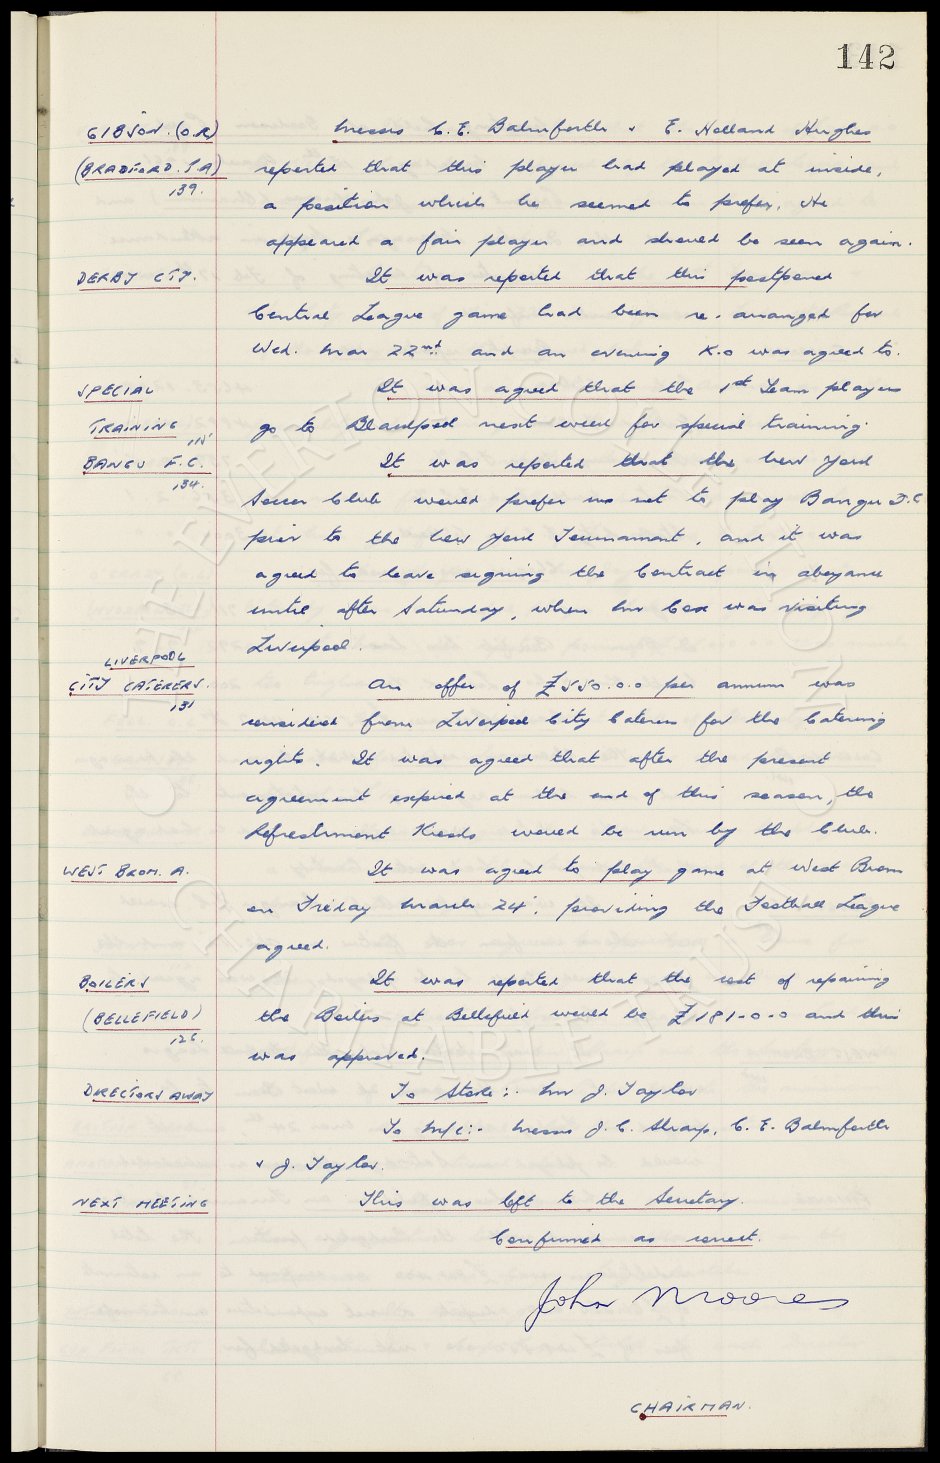 142
GIBSON. (O.R) Messrs C. E. Balmforth & E. Holland Hughes
(BRADFORD. P.A) reported that this player had played at inside,
139. a position which he seemed to prefer. He
appeared a fair player and should be seen again.
DERBY CTY. It was reported that this postponed
Central League game had been re-arranged for
Wed. Mar 22nd and an evening K.O was agreed to.
SPECIAL It was agreed that the 1st Team players
TRAINING go to Blackpool next week for special training.
115
BANGU F.C. It was reported that the New York
134. Soccer Club would prefer us not to play Bangu F.C
prior to the New York Tournament, and it was
agreed to leave signing the Contract in abeyance
until after Saturday, when Mr Cox was visiting
Liverpool.
LIVERPOOL
CITY CATERERS. An offer of £550.0.0 per annum was
131 considered from Liverpool City Caterers for the Catering
rights. It was agreed that after the present
agreement expired at the end of this season, the
Refreshment Kiosks would be run by the Club.
WEST BROM. A. It was agreed to play game at West Brom
on Friday March 24th, providing the Football League
agreed.
BOILERS It was reported that the cost of repairing
(BELLEFIELD) the Boilers at Bellefield would be £181-0-0 and this
126. was approved.
DIRECTORS AWAY To Stoke:- Mr J. Taylor
To M/c:- Messrs J. C. Sharp, C. E. Balmforth
& J. Taylor.
NEXT MEETING This was left to the Secretary.
Confirmed as correct.
John Moores
CHAIRMAN.
THE EVERTON COLLECTION
CHARITABLE TRUST